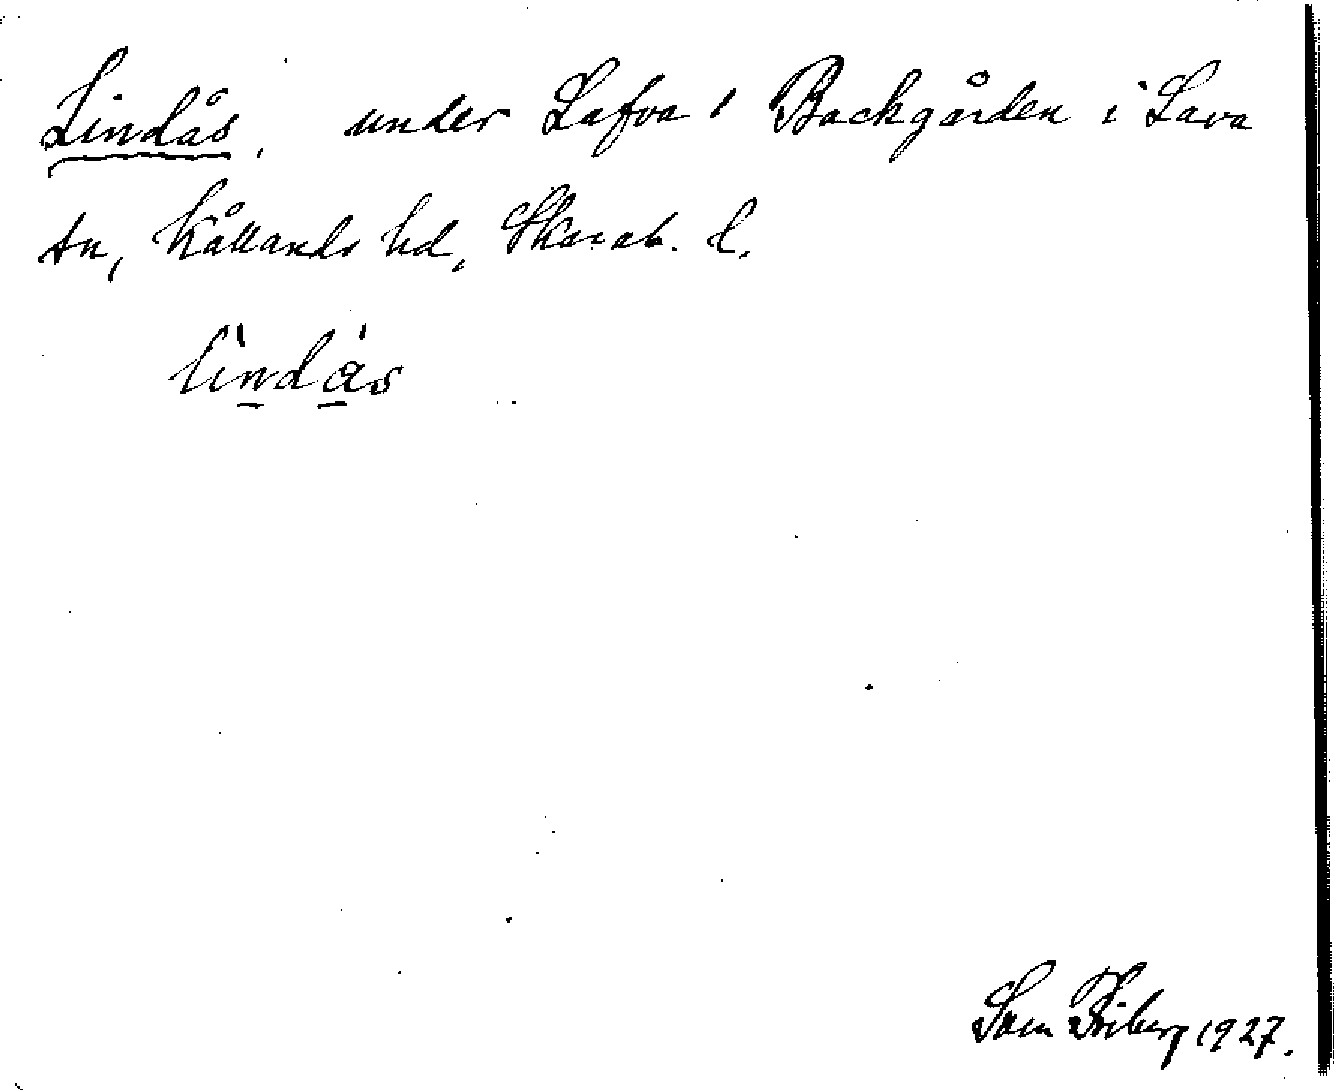 Lindås, under Lafva 1 Backgården i Lava
sn, Kållands hd, Skarab. l.
lìndás
Sven Friberg 1927.